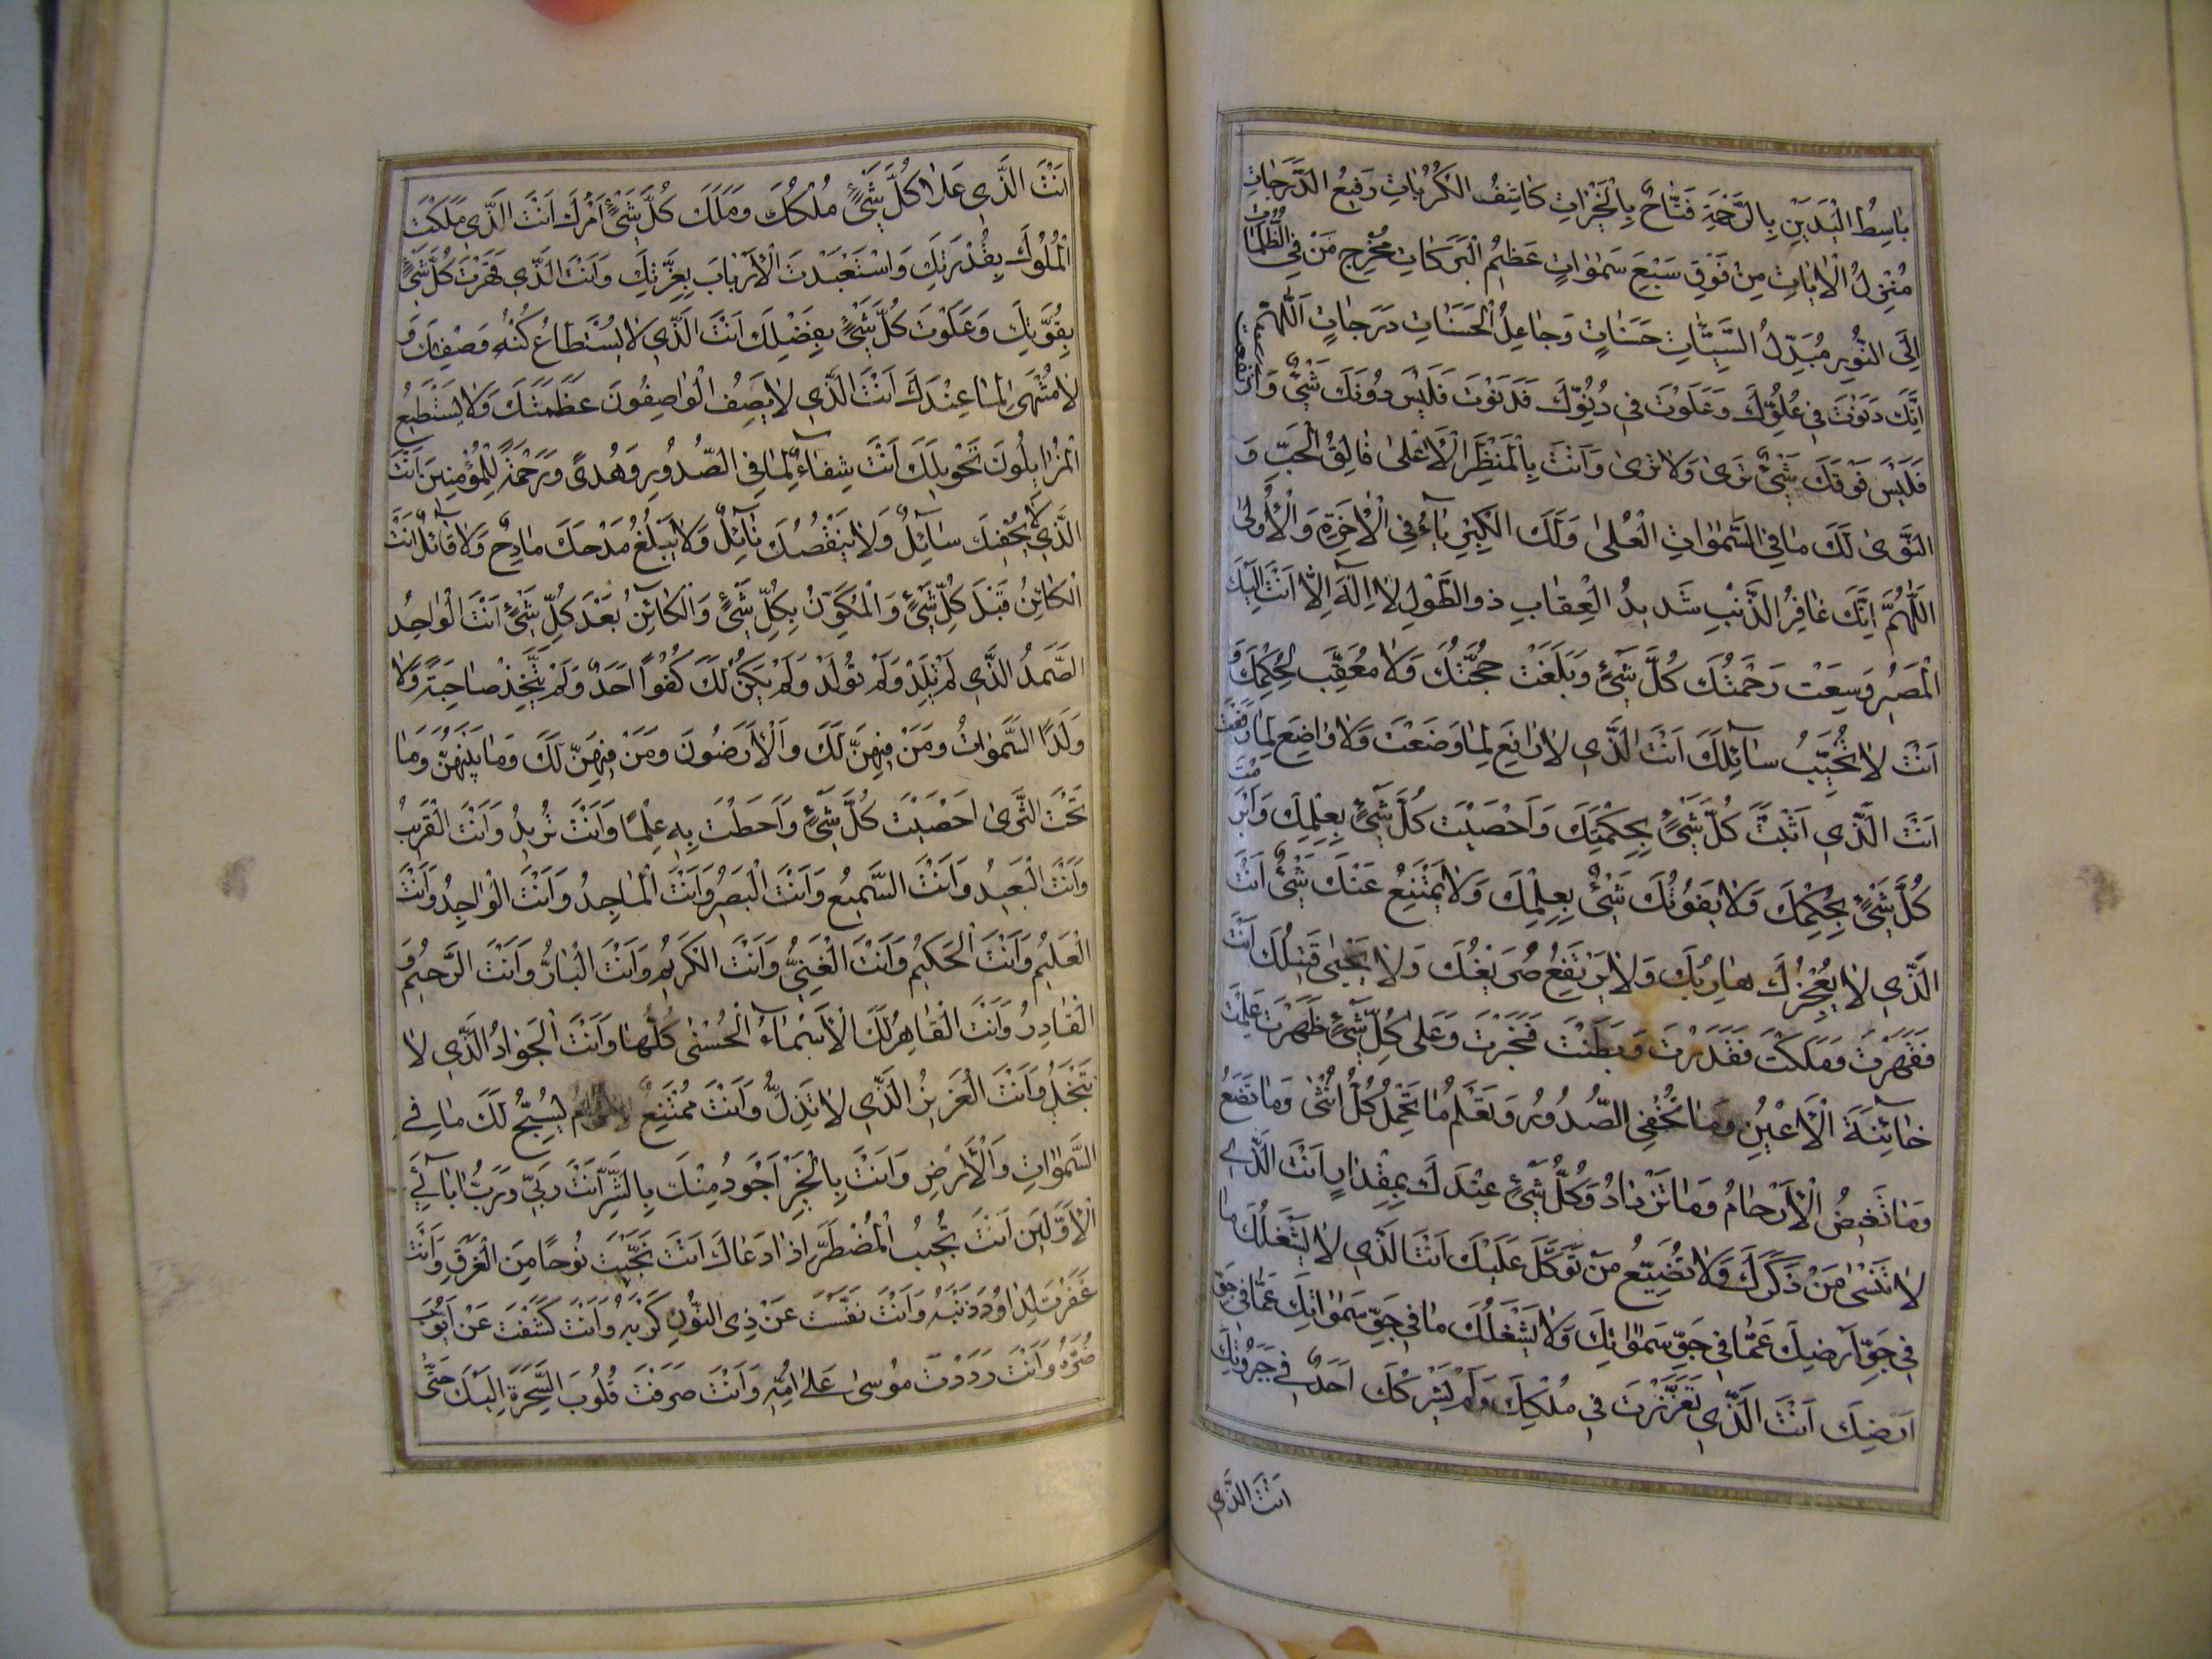 بٰاسِطُ الْيَدَيْنِ بِالرَّحْمَةِ فَتّٰاحٌ بِالْخَيْرٰاتِ كٰاشِفُ الْكُرُبٰاتِ رَفِيعُ الدَّرَجٰاتِ
مُنْزِلُ الْاٰيٰاتِ مِنْ فَوْقِ سَبْعَ سَمٰوٰاتٍ عَظِيمُ الْبَرَكٰاتِ مُخْرِج مَنْ فِي الظُّلُمٰاتِ
اِلَى النُّورِ مُبَدِّلُ السَّيِّئٰاتِ حَسَنٰاتٍ وَجٰاعِلُ الْحَسَنٰاتِ دَرَجٰاتٍ اَللّٰهُمَّ
اِنَّكَ دَنَوْتَ فِي عُلُوِّكَ وَعَلَوْتَ فِي دُنُوِّكَ فَدَنَوْتَ فَلَيْسَ دُونَكَ شَيْءٌ وَارْتَفَعْتَ
فَلَيْسَ فَوْقَكَ شَيْءٌ تَرىٰ وَلاٰ تُرىٰ وَاَنْتَ بِالْمَنْظَرِ الْاَعْلىٰ فٰالِقُ الْحَبِّ وَ
النَّوىٰ لَكَ مٰا فِي السَّمٰوٰاتِ الْعُلىٰ وَلَكَ الْكِبْرِيٰاءُ فِي الْاٰخِرَةِ وَالْاُولىٰ
اَللّٰهُمَّ اِنَّكَ غٰافِرُ الذَّنْبِ شَدِيدُ الْعِقٰابِ ذو الطَّوْلِ لاٰ اِلٰهَ اِلّٰا اَنْتَ اِلَيْكَ
الْمَصِيرُ وَسِعَتْ رَحْمَتُكَ كُلَّ شَيْءٍ وَبَلَغَتْ حُجَّتُكَ وَلاٰ مُعَقِّبَ لِحُكْمِكَ وَ
اَنْتَ لاٰ تُخَيِّبُ سٰائِلَكَ اَنْتَ الَّذِي لاٰ رٰافِعَ لِمٰا وَضَعْتَ وَلاٰ وٰاضِعَ لِمٰا رَفَعْتَ
اَنْتَ الَّذِي اَثْبَتَّ كُلَّ شَيْءٍ بِحِكْمَتِكَ وَاَحْصَيْتَ كُلَّ شَيْءٍ بِعِلْمِكَ وَاَبْرَمْتَ
كُلَّ شَيْءٍ بِحُكْمِكَ وَلاٰ يَفُوتُكَ شَيْءٌ بِعِلْمِكَ وَلاٰ يَمْتَنِعُ عَنْكَ شَيْءٌ اَنْتَ
الَّذِي لاٰ يُعْجِزُكَ هٰارِبُكَ وَلاٰ يَرْتَفِعُ صَرِيعُكَ وَلاٰ يَحْيىٰ قَتِيلُكَ اَنْتَ
فَقَهَرْتَ وَمَلَكْتَ فَقَدَرْتَ وَبَطَنْتَ فَخَبَرْتَ وَعَلىٰ كُلِّ شَيْءٍ ظَهَرْتَ عَلِمْتَ
خٰائِنَةَ الْاَعْيُنِ وَمٰا تُخْفِي الصُّدُورُ وَتَعْلَمُ مٰا تَحْمِلُ كُلُّ اُنْثىٰ وَمٰا تَضَعُ
وَمٰا تَغِيضُ الْاَرْحٰامُ وَمٰا تَزْدٰادُ وَكُلُّ شَيْءٍ عِنْدَكَ بِمِقْدٰارٍ اَنْتَ الَّذِي
لاٰ تَنْسىٰ مَنْ ذَكَرَكَ وَلاٰ تُضَيِّعُ مَنْ تَوَكَّلَ عَلَيْكَ اَنْتَ الَّذِي لاٰ يَشْغَلُكَ مٰا
فِي جَوِّ اَرْضِكَ عَمّٰا فِي جَوِّ سَمٰوٰاتِكَ وَلاٰ يَشْغَلُكَ مٰا فِي جَوِّ سَمٰوٰاتِكَ عَمّٰا فِي جَوِّ
اَرْضِكَ اَنْتَ الَّذِي تَعَزَّزْتَ فِي مُلْكِكَ وَلَمْ يَشْرَكْكَ اَحَدٌ فِي جَبَرُوتِكَ
اَنْتَ الَّذِي
اَنْتَ الَّذِي عَلاٰ كُلَّ شَيْءٍ مُلْكُكَ وَمَلَكَ كُلَّ شَيْءٍ اَمْرُكَ اَنْتَ الَّذِي مَلَكْتَ
الْمُلُوكَ بِقُدْرَتِكَ وَاسْتَعْبَدْتَ الْاَرْبٰابَ بِعِزَّتِكَ وَاَنْتَ الَّذِي قَهَرْتَ كُلَّ شَيْءٍ
بِقُوَّتِكَ وَعَلَوْتَ كُلَّ شَيْءٍ بِفَضْلِكَ اَنْتَ الَّذِي لاٰ يُسْتَطٰاعُ كُنْهُ وَصْفِكَ وَ
لاٰ مُنْتَهىٰ لِمٰا عِنْدَكَ اَنْتَ الَّذِي لاٰ يَصِفُ الْوٰاصِفُونَ عَظَمَتَكَ وَلاٰ يَسْتَطِيعُ
الْمُزٰايِلُونَ تَحْوِيلَكَ اَنْتَ شِفٰاءٌ لِمٰا فِي الصُّدُورِ وَهُدىً وَرَحْمَةٌ لِلْمُؤْمِنِينَ اَنْتَ
الَّذِي لاٰ يُحْفِيكَ سٰائِلٌ وَلاٰ يَنْقُصُكَ نٰائِلٌ وَلاٰ يَبْلُغُ مَدْحَكَ مٰادِحٌ وَلاٰ قٰائِلٌ اَنْتَ
الْكٰائِنُ قَبْلَ كُلِّ شَيْءٍ وَالْمُكَوِّنُ بِكُلِّ شَيْءٍ وَالْكٰائِنُ بَعْدَ كُلِّ شَيْءٍ اَنْتَ الْوٰاحِدُ
الصَّمَدُ الَّذِي لَمْ تَلِدْ وَلَمْ تُولَدْ وَلَمْ يَكُنْ لَكَ كُفُوًا اَحَدٌ وَلَمْ تَتَّخِذْ صٰاحِبَةً وَلاٰ
وَلَدًا السَّمٰوٰاتُ وَمَنْ فِيهِنَّ لَكَ وَالْاَرَضُونَ وَمَنْ فِيهِنَّ لَكَ وَمٰا بَيْنَهُنَّ وَمٰا
تَحْتَ الثَّرىٰ اَحْصَيْتَ كُلَّ شَيْءٍ وَاَحَطْتَ بِهِ عِلْمًا وَاَنْتَ تُرِيدُ وَاَنْتَ الْقَرِيبُ
وَاَنْتَ الْبَعِيدُ وَاَنْتَ السَّمِيعُ وَاَنْتَ الْبَصِيرُ وَاَنْتَ الْمٰاجِدُ وَاَنْتَ الْوٰاحِدُ وَاَنْتَ
الْعَلِيمُ وَاَنْتَ الْحَكِيمُ وَاَنْتَ الْغَنِيُّ وَاَنْتَ الْكَرِيمُ وَاَنْتَ الْبٰارُّ وَاَنْتَ الرَّحِيمُ وَ
الْقٰادِرُ وَاَنْتَ الْقٰاهِرُ لَكَ الْاَسْمٰاءُ الْحُسْنىٰ كُلُّهٰا وَاَنْتَ الْجَوٰادُ الَّذِي لاٰ
تَبْخَلُ وَاَنْتَ الْعَزِيزُ الَّذِي لاٰ تَذِلُّ وَاَنْتَ مُمْتَنِعٌ يُسَبِّحُ لَكَ مٰا فِي
السَّمٰوٰاتِ وَالْاَرْضِ وَاَنْتَ بِالْخَيْرِ اَجْوَدُ مِنْكَ بِالشَّرِّ اَنْتَ رَبِّي وَرَبُّ اٰبٰائِيَ
الْاَوَّلِينَ اَنْتَ تُجِيبُ الْمُضْطَرَّ اِذٰا دَعٰاكَ اَنْتَ نَجَّيْتَ نُوحًا مِنَ الْغَرَقِ وَاَنْتَ
غَفَرْتَ لِدٰاوُدَ ذَنْبَهُ وَاَنْتَ نَفَّسْتَ عَنْ ذِي النُّونِ كَرْبَهُ وَاَنْتَ كَشَفْتَ عَنْ اَيُّوبَ
ضُرَّهُ وَاَنْتَ رَدَدْتَ مُوسىٰ عَلىٰ اُمِّهِ وَاَنْتَ صَرَفْتَ قُلُوبَ السَّحَرَةِ اِلَيْكَ حَتّٰى